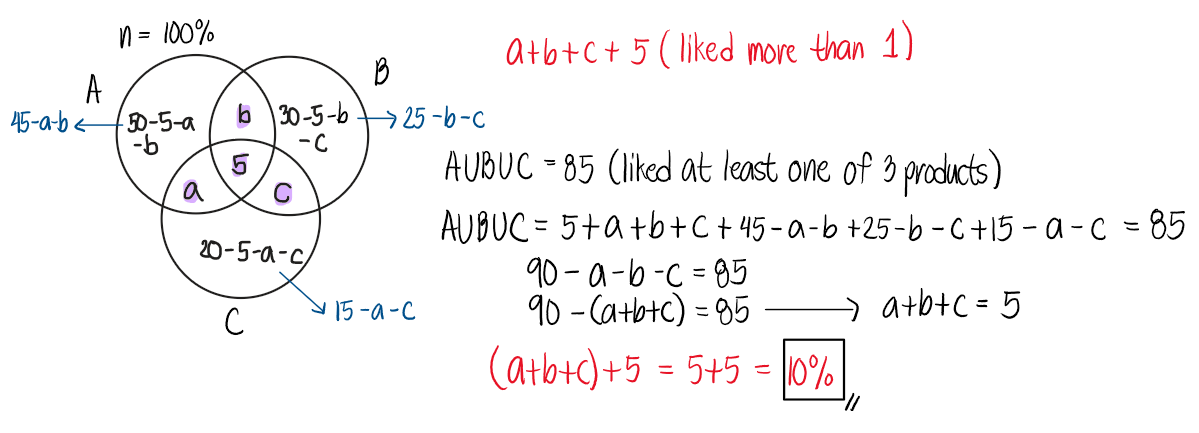 n = 100%
A
B
45-a-b
50-5-a
-b
b
30-5-b
-c
25-b-c
5
a
c
20-5-a-c
15-a-c
C
a+b+c+5 (liked more than 1)
AUBUC = 85 (liked at least one of 3 products)
AUBUC = 5+a+b+c+45-a-b+25-b-c+15-a-c = 85
90-a-b-c = 85
90-(a+b+c) = 85 → a+b+c = 5
(a+b+c)+5 = 5+5 = 10%